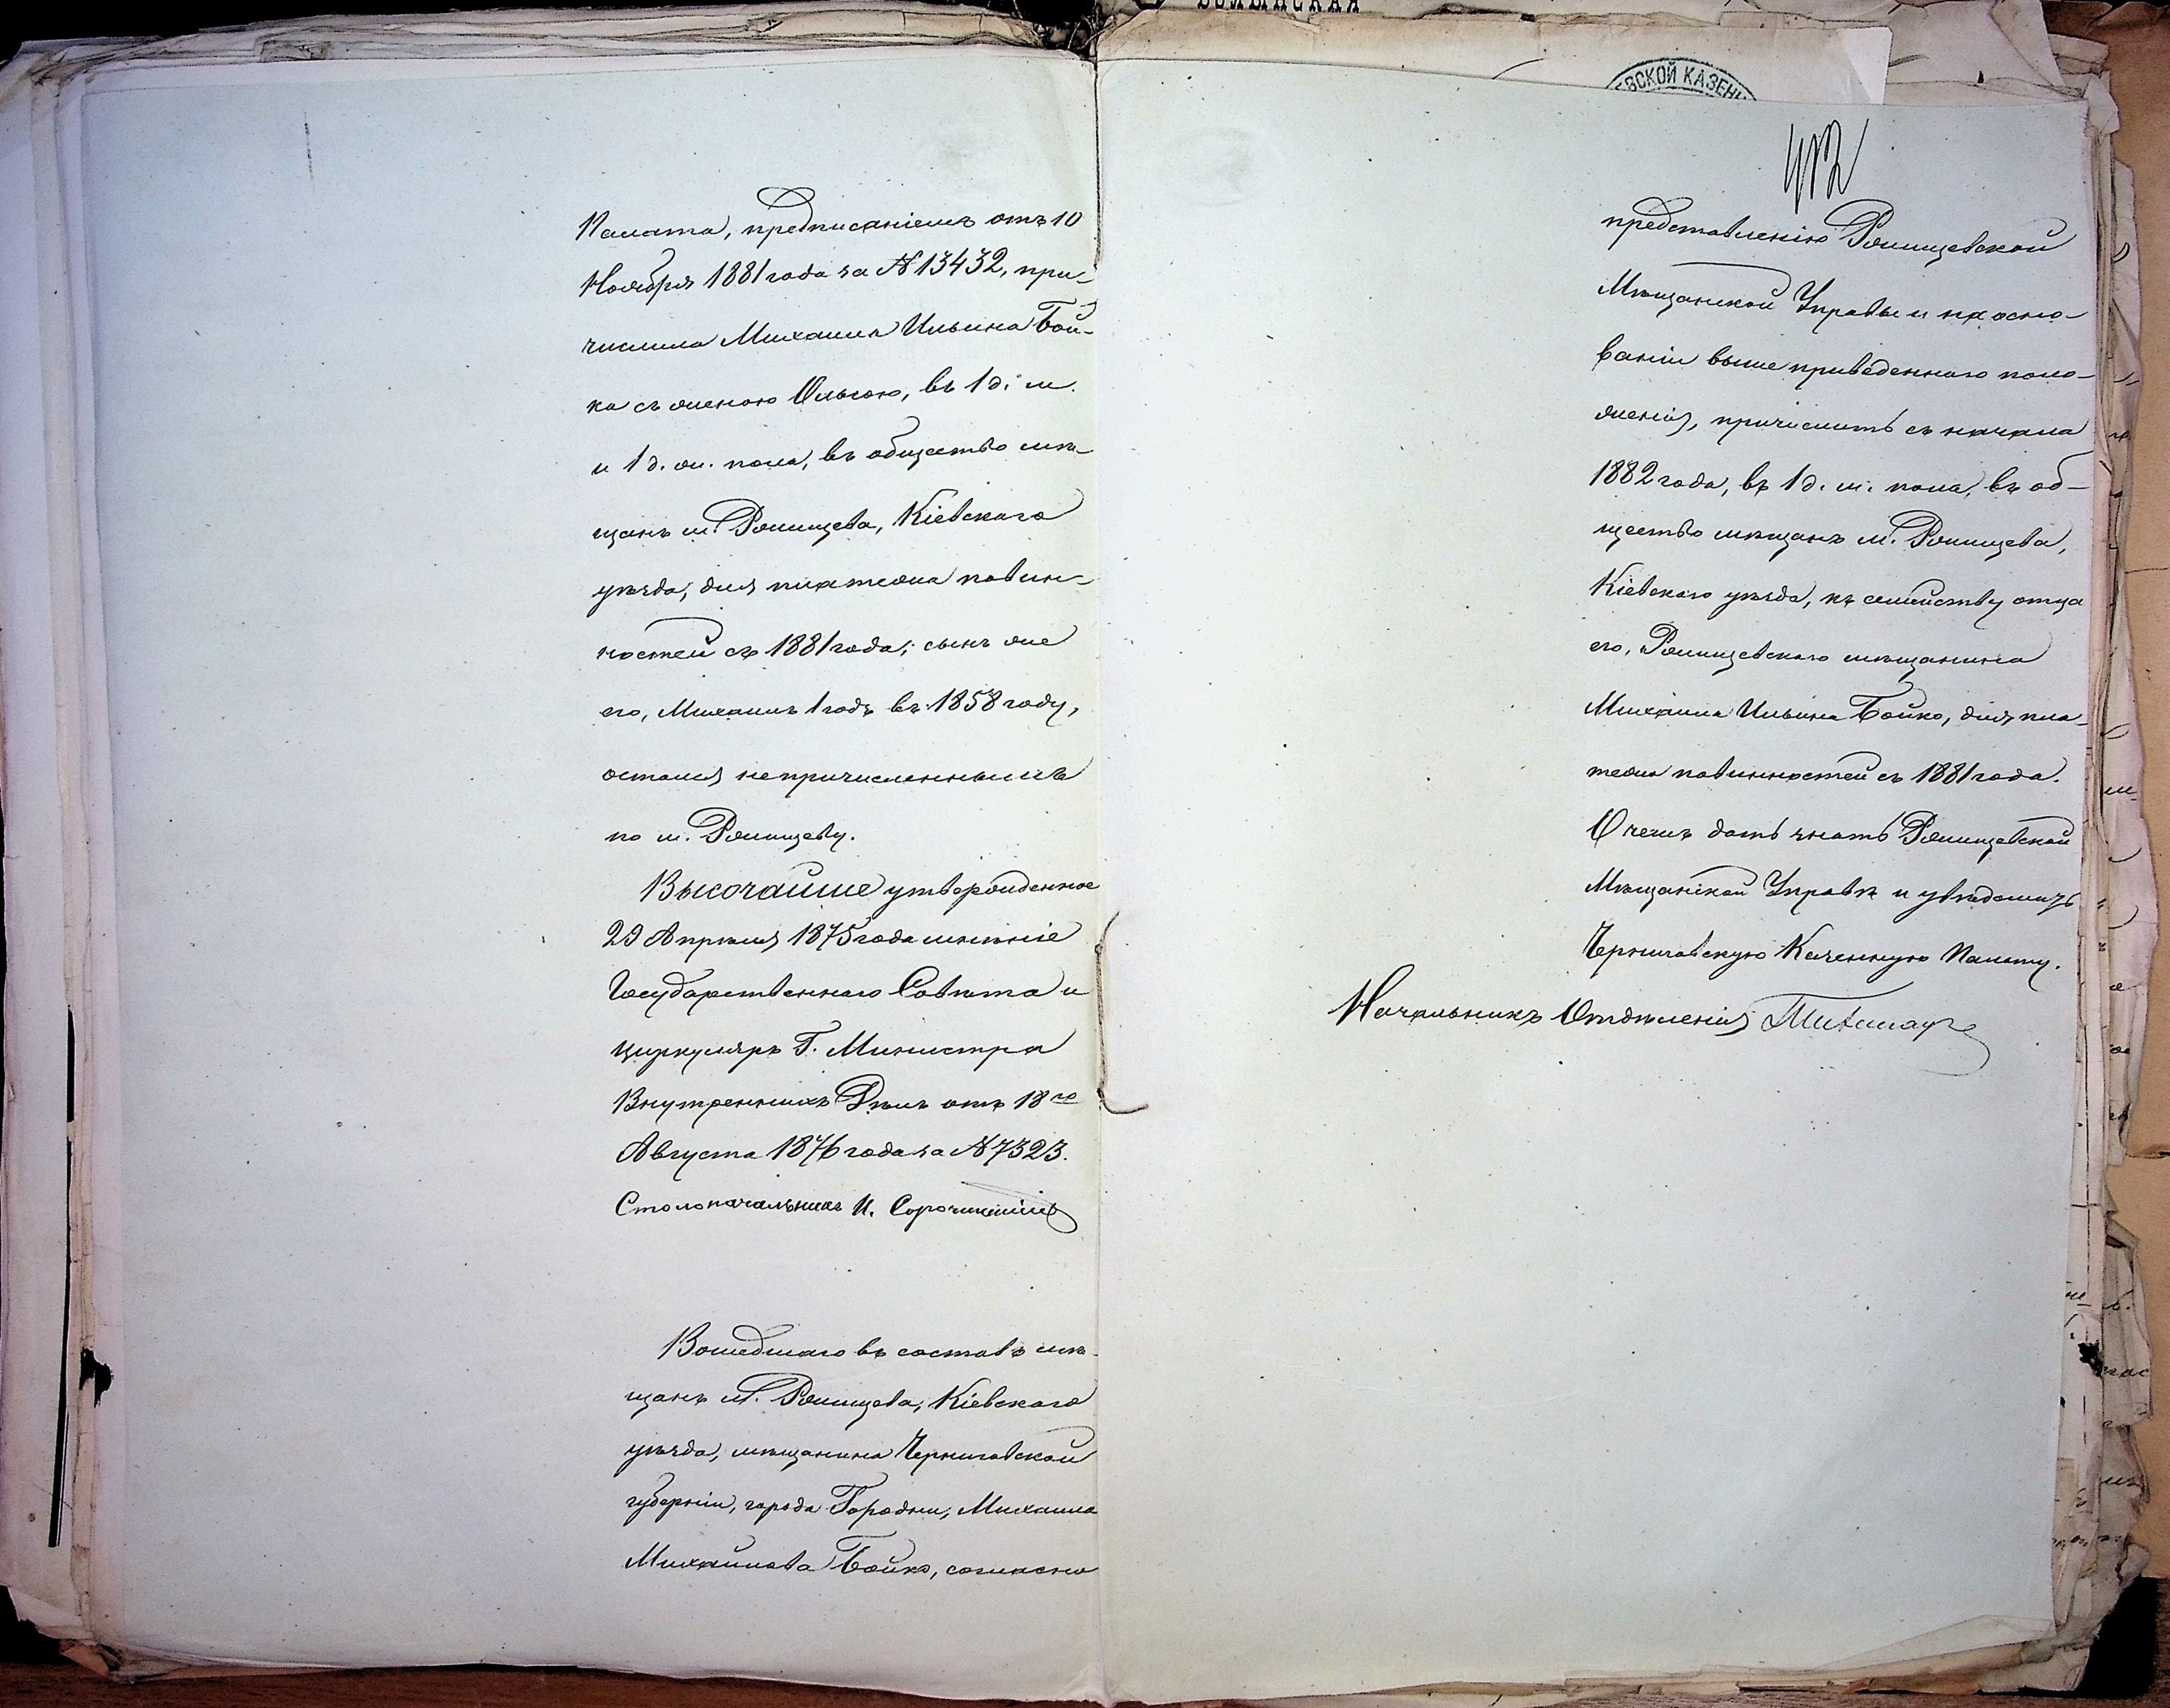 ВОЛЫНСКАЯ
ЕВСКОЙ КАЗЕНН
Палата, предписаніемъ отъ 10
Ноября 1881 года за № 13432, при-
числила Михаила Ильина Бой-
ка съ женою Ольгою, въ 1 д. м.
и 1 д. ж. пола, въ общество мѣ-
щанъ м. Ржищева, Кіевскаго
уѣзда, для платежа повин-
ностей съ 1881 года; сынъ же
его, Михаилъ 1 годъ въ 1858 году,
остался непричисленнымъ
по м. Ржищеву.
Высочайше утвержденное
29 Апрѣля 1875 года мнѣніе
Государственнаго Совѣта и
циркуляръ Г. Министра
Внутреннихъ Дѣлъ отъ 18го
Августа 1876 года за № 7323.
Столоначальникъ И. Сорочинскій
Вошедшаго въ составъ мѣ-
щанъ м. Ржищева, Кіевскаго
уѣзда, мѣщанина Черниговской
губерніи, города Городни, Михаила
Михайлова Бойко, согласно
412
представленію Ржищевской
Мѣщанской Управы и на осно-
ваніи выше приведеннаго поло-
женія, причислить съ начала
1882 года, въ 1 д. м. пола, въ об-
щество мѣщанъ м. Ржищева,
Кіевскаго уѣзда, къ семейству отца
его, Ржищевскаго мѣщанина
Михаила Ильина Бойко, для пла-
тежа повинностей съ 1881 года.
О чемъ дать знать Ржищевской
Мѣщанской Управѣ и увѣдомить
Черниговскую Казенную Палату.
Начальникъ Отдѣленія